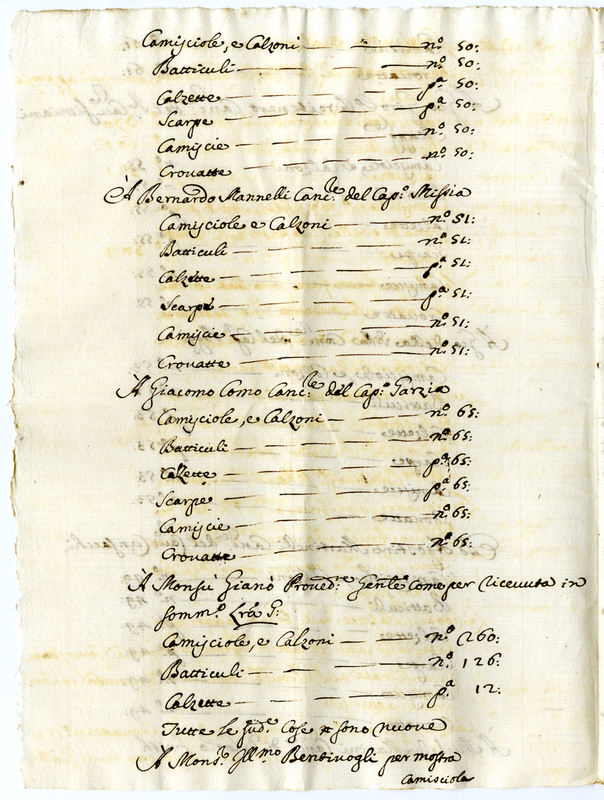 Camisciole, e Calzoni — — nº 50:
Batticuli — — — nº 50:
Calzette — — — pª 50:
Scarpe — — — pª 50:
Camiscie — — — nº 50:
Crovatte — — — nº 50:
À Bernardo Mannelli Canc:re del Cap:º Missia
Camisciole e Calzoni — — nº 51:
Batticuli — — — nº 51:
Calzette — — — pª 51:
Scarpe — — — pª 51:
Camiscie — — — nº 51:
Crovatte — — — nº 51:
À Giacomo Como Canc:le del Cap:º Garzia
Camisciole, e Calzoni — — nº 65:
Batticuli — — — nº 65:
Calzette — — — pª 65:
Scarpe — — — pª 65:
Camiscie — — — nº 65:
Crovatte — — — nº 65:
À Monsù Gianò Proved:re Genle: come per ricevuta in
somm:º Lrã G:
Camisciole, e Calzoni — — nº 260:
Batticuli — — — nº 126:
Calzette — — — pª 12:
Tutte le sud:e Cose sono nuove
À Mons:r Ill:mo Bentivogli per mostra
Camisciola